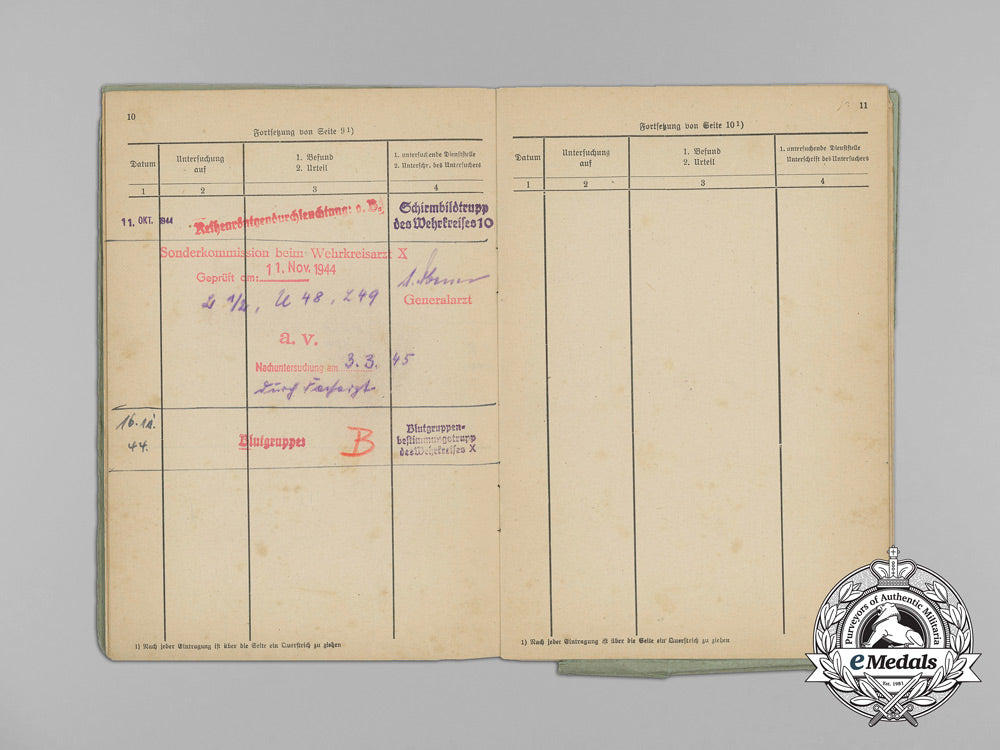 10
Fortsetzung von Seite 9¹)
Datum
Untersuchung
auf
1. Befund
2. Urteil
1. untersuchende Dienststelle
2. Unterschr. des Untersuchers
1 2 3 4
11. OKT. 1944
Reihenröntgendurchleuchtung: o. B.
Schirmbildtrupp
des Wehrkreises 10
Sonderkommission beim Wehrkreisarzt X
Geprüft am: 11. Nov. 1944
2 1/2, U 48, Z 49
Generalarzt
a. v.
Nachuntersuchung am 3. 3. 45
durch Facharzt
44.
Blutgruppe:
B
Blutgruppen-
bestimmungstrupp
des Wehrkreises X
1) Nach jeder Eintragung ist über die Seite ein Querstrich zu ziehen
11
Fortsetzung von Seite 10¹)
Datum
Untersuchung
auf
1. Befund
2. Urteil
1. untersuchende Dienststelle
Unterschrift des Untersuchers
1 2 3 4
1) Nach jeder Eintragung ist über die Seite ein Querstrich zu ziehen
Purveyors of Authentic Militaria
eMedals
Est. 1981